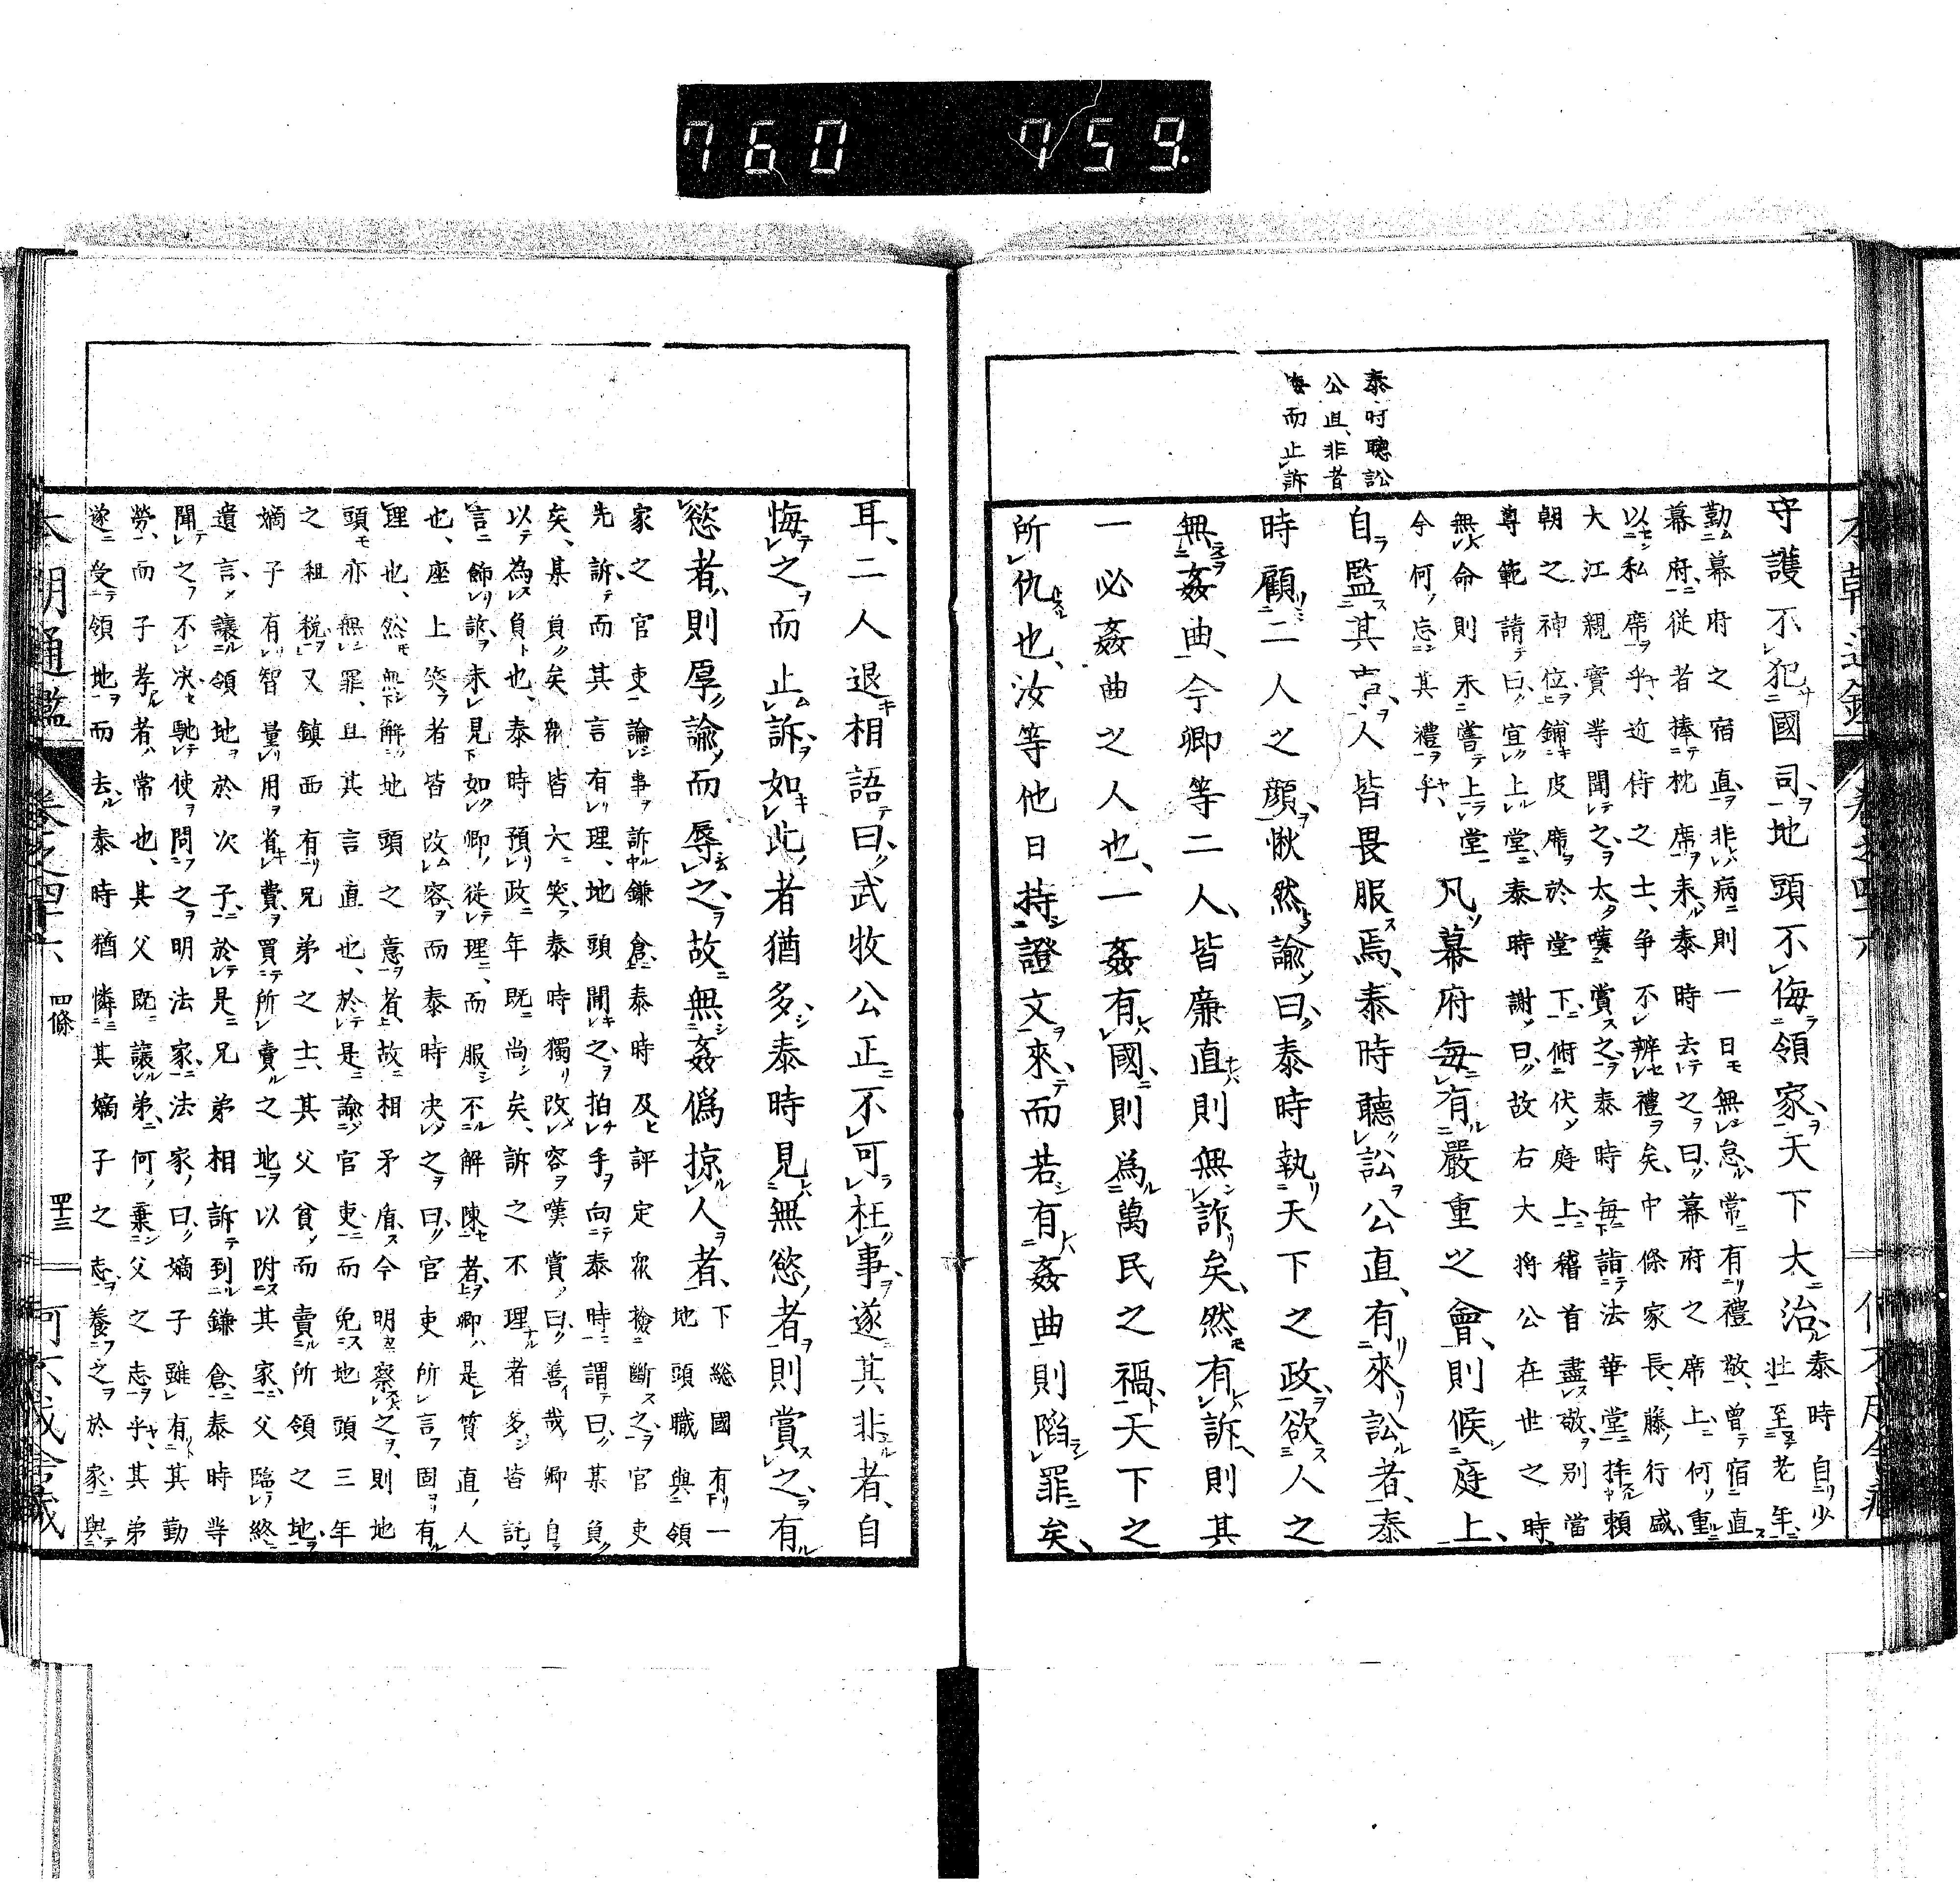 本朝通鑑 卷之四十六
泰時聽訟
公直非者
悔而止訴
守護不犯國司地頭不侮領家天下大治泰時自少
壯至老年
勤幕府之宿直非病則一日無怠常有禮敬曾宿直
幕府從者捧枕席來泰時去之曰幕府之席上何重
以私席乎近侍之士爭不辨禮矣中條家長藤行盛
大江親實等聞之太嘆賞之泰時每詣法華堂拜賴
朝之神位鋪皮席於堂下俯伏庭上稽首盡敬別當
尊範請曰宜上堂泰時謝曰故右大將公在世之時
無命則未嘗上堂
今何忘其禮乎凡幕府每有嚴重之會則候庭上
自監其人皆畏服焉泰時聽訟公直有來訟者泰
時顧二人之顏愀然諭曰泰時執天下之政欲人之
無姦曲今卿等二人皆廉直則無詐矣然有訴則其
一必姦曲之人也一姦有國則為萬民之禍天下之
所仇也汝等他日持證文來而若有姦曲則陷罪矣
耳二人退相語曰武牧公正不可枉事遂其非者自
悔之而止訴如此者猶多泰時見無慾者則賞之有
慾者則厚諭而辱之故無姦偽掠人者下總國有一
地頭職與領
家之官吏論事訴鎌倉泰時及評定眾檢斷之官吏
先訴而其言有理地頭聞之拍手向泰時謂曰某負
矣某負矣眾皆大笑泰時獨改容嘆賞曰善哉卿自
以為負也泰時預政年既尚矣訴之不理者多皆託
言飾訟未見如卿從理而服不解陳者卿是質直人
也座上笑者皆改容而泰時決之曰官吏所言固有
理也然無解地頭之意者故相矛盾今明察之則地
頭亦無罪且其言直也於是諭官吏而免地頭三年
之租稅又鎮西有兄弟之士其父貧而賣所領之地
嫡子有智量用省費買所賣之地以附其家父臨終
遺言讓領地於次子於是兄弟相訴到鎌倉泰時等
聞之不決馳使問之明法家法家曰嫡子雖有其勤
勞而子孝者常也其父既讓弟何棄父之志乎其弟
遂受領地而去泰時猶憐其嫡子之志養之於家與
本朝通鑑 卷之四十六 四條 四十三
760 759